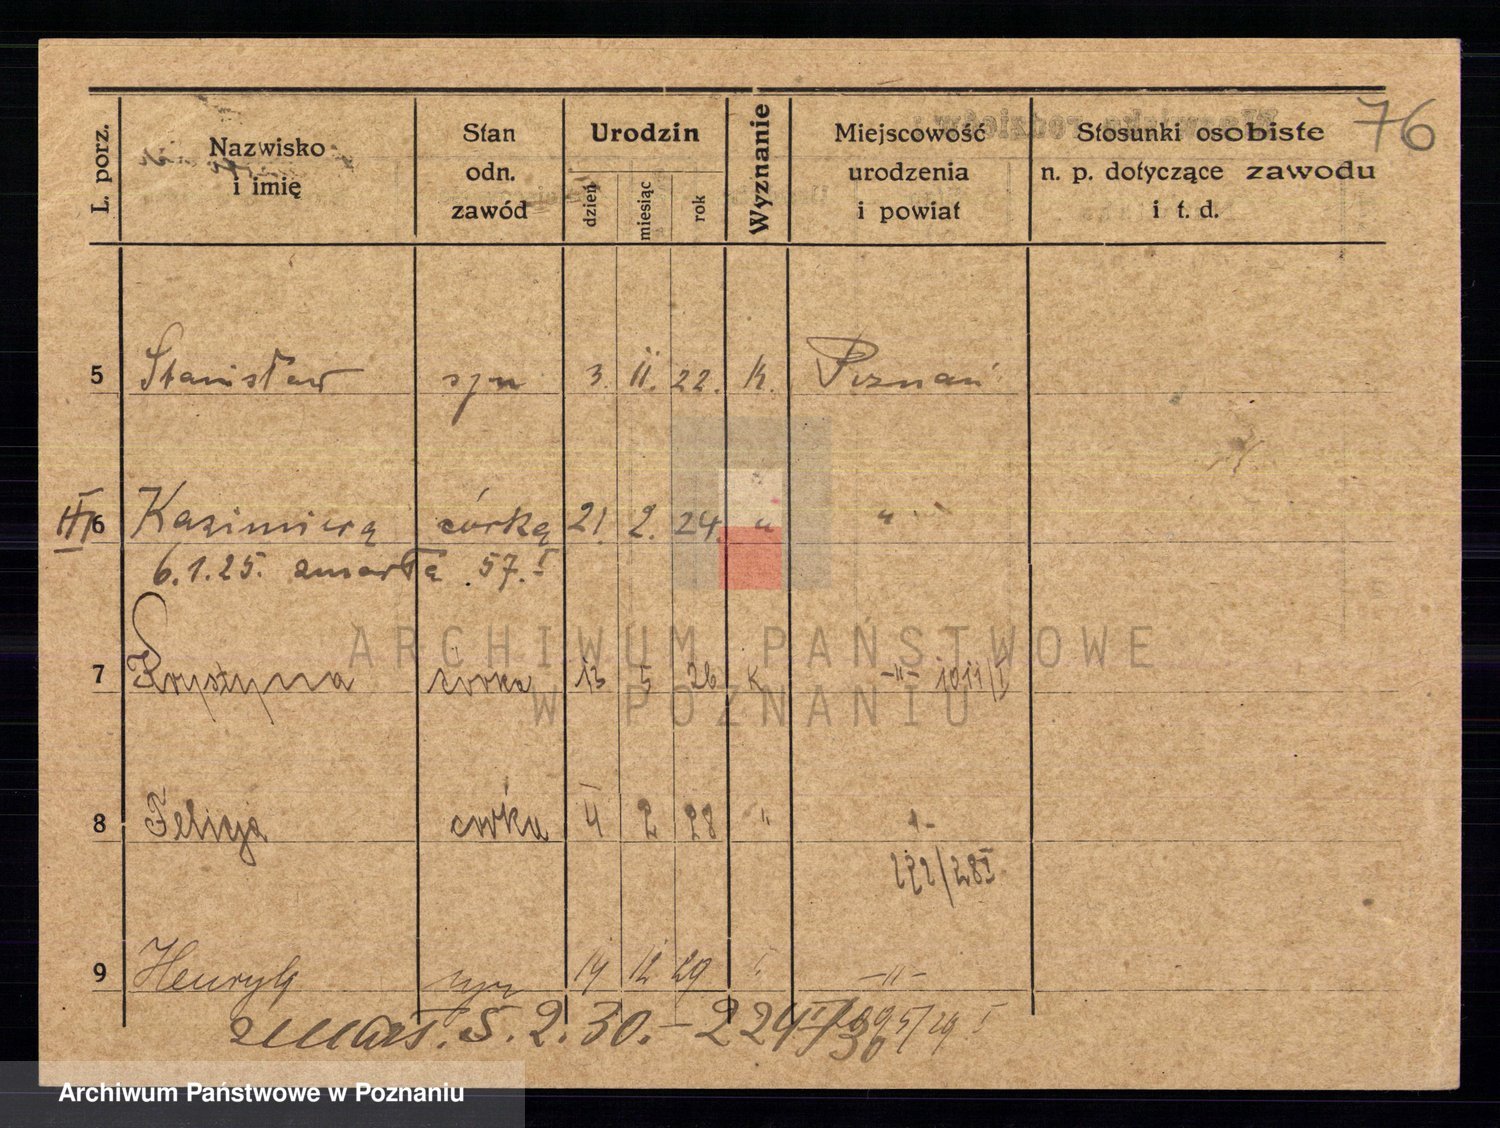 76
L. porz. Nazwisko i imię Stan odn. zawód Urodzin dzień miesiąc rok Wyznanie Miejscowość urodzenia i powiat Stosunki osobiste n. p. dotyczące zawodu i t. d.
5 Stanisław syn 3. II. 22. K. Poznań
III 6 Kazimiera córka 21. 2. 24. " "
6.1.25. zmarła 57. I
7 Krystyna córka 13 5 26 K -"- 1011/I
8 Felicja córka 4 2 28 "
292/28 I
9 Henryk syn 14 12 29 -"-
zmarł. 5. 2. 30. - 224
ARCHIWUM PAŃSTWOWE
W POZNANIU
Archiwum Państwowe w Poznaniu